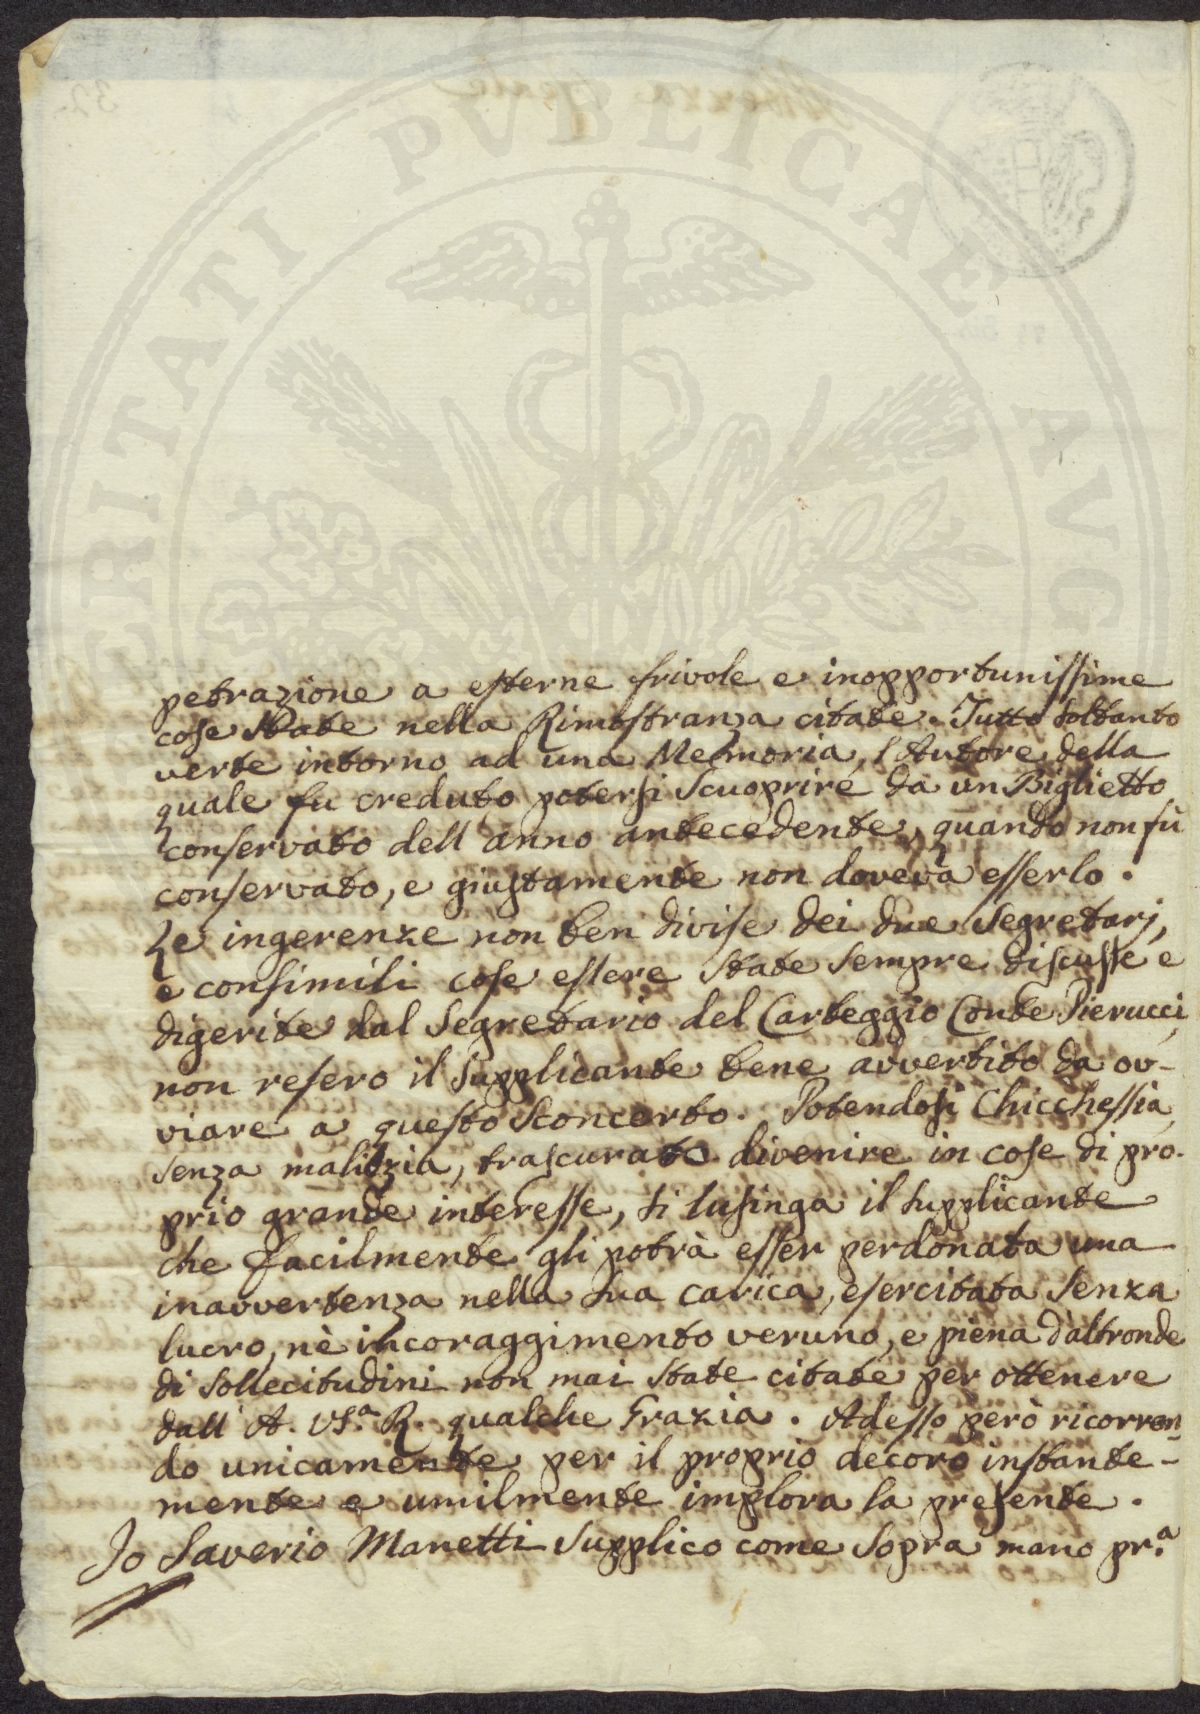 PVBLICAE
ERITATI
AVG
petrazione a esterne frivole e inopportunissime
cose state nella Rimostranza citate. Tutto soltanto
verte intorno ad una Memoria, l'Autore della
quale fu creduto potersi scuoprire da un Biglietto
conservato dell'anno antecedente, quando non fù
conservato, e giustamente non doveva esserlo.
Le ingerenze non ben divise dei due Segretarj,
e consimili cose essere state sempre discusse e
digerite dal Segretario del Carteggio Conte Pierucci,
non resero il supplicante bene avvertito da ov-
viare a questo sconcerto. Potendosi Chicchessia,
senza malizia, trascurato divenire in cose di pro-
prio grande interesse, si lusinga il supplicante
che facilmente gli potrà esser perdonata una
inavvertenza nella sua carica, esercitata senza
lucro, nè incoraggimento veruno, e piena d'altronde
di sollecitudini non mai state citate per ottenere
dall'A. Vs.ª R. qualche Grazia. Adesso però ricorren-
do unicamente per il proprio decoro instante-
mente e umilmente implora la presente.
Io Saverio Manetti supplico come sopra mano pr.ª